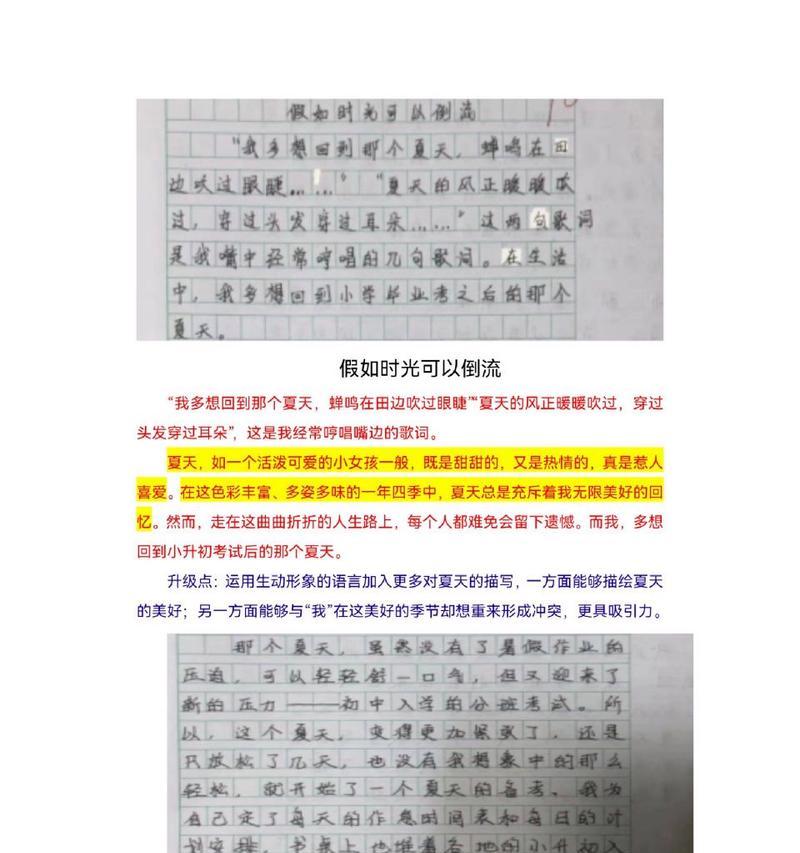 假如时光可以倒流
“我多想回到那个夏天，蝉鸣在田
边吹过眼睫……”“夏天的风正暖暖吹
过，穿过头发穿过耳朵……”这两句歌词
是我嘴中经常哼唱的几句歌词。在生活
中，我多想回到小学毕业考之后的那个
夏天。
假如时光可以倒流
“我多想回到那个夏天，蝉鸣在田边吹过眼睫”“夏天的风正暖暖吹过，穿过
头发穿过耳朵”，这是我经常哼唱嘴边的歌词。
夏天，如一个活泼可爱的小女孩一般，既是甜甜的，又是热情的，真是惹人
喜爱。在这色彩丰富、多姿多味的一年四季中，夏天总是充斥着我无限美好的回
忆。然而，走在这曲曲折折的人生路上，每个人都难免会留下遗憾。而我，多想
回到小升初考试后的那个夏天。
升级点：运用生动形象的语言加入更多对夏天的描写，一方面能够描绘夏天
的美好；另一方面能够与“我”在这美好的季节却想重来形成冲突，更具吸引力。
那个夏天，虽然没有了暑假作业的
压迫，可以轻轻舒一口气，但又迎来了
新的压力——初中入学的分班考试。所
以，这个夏天，变得更加紧张了，还是
只放松了几天，也没有我想象中的那么
轻松，就开始了一个夏天的备考。我为
自己定了每天的作息时间表和每日的计
划安排，书桌上也堆着各地的小升初入